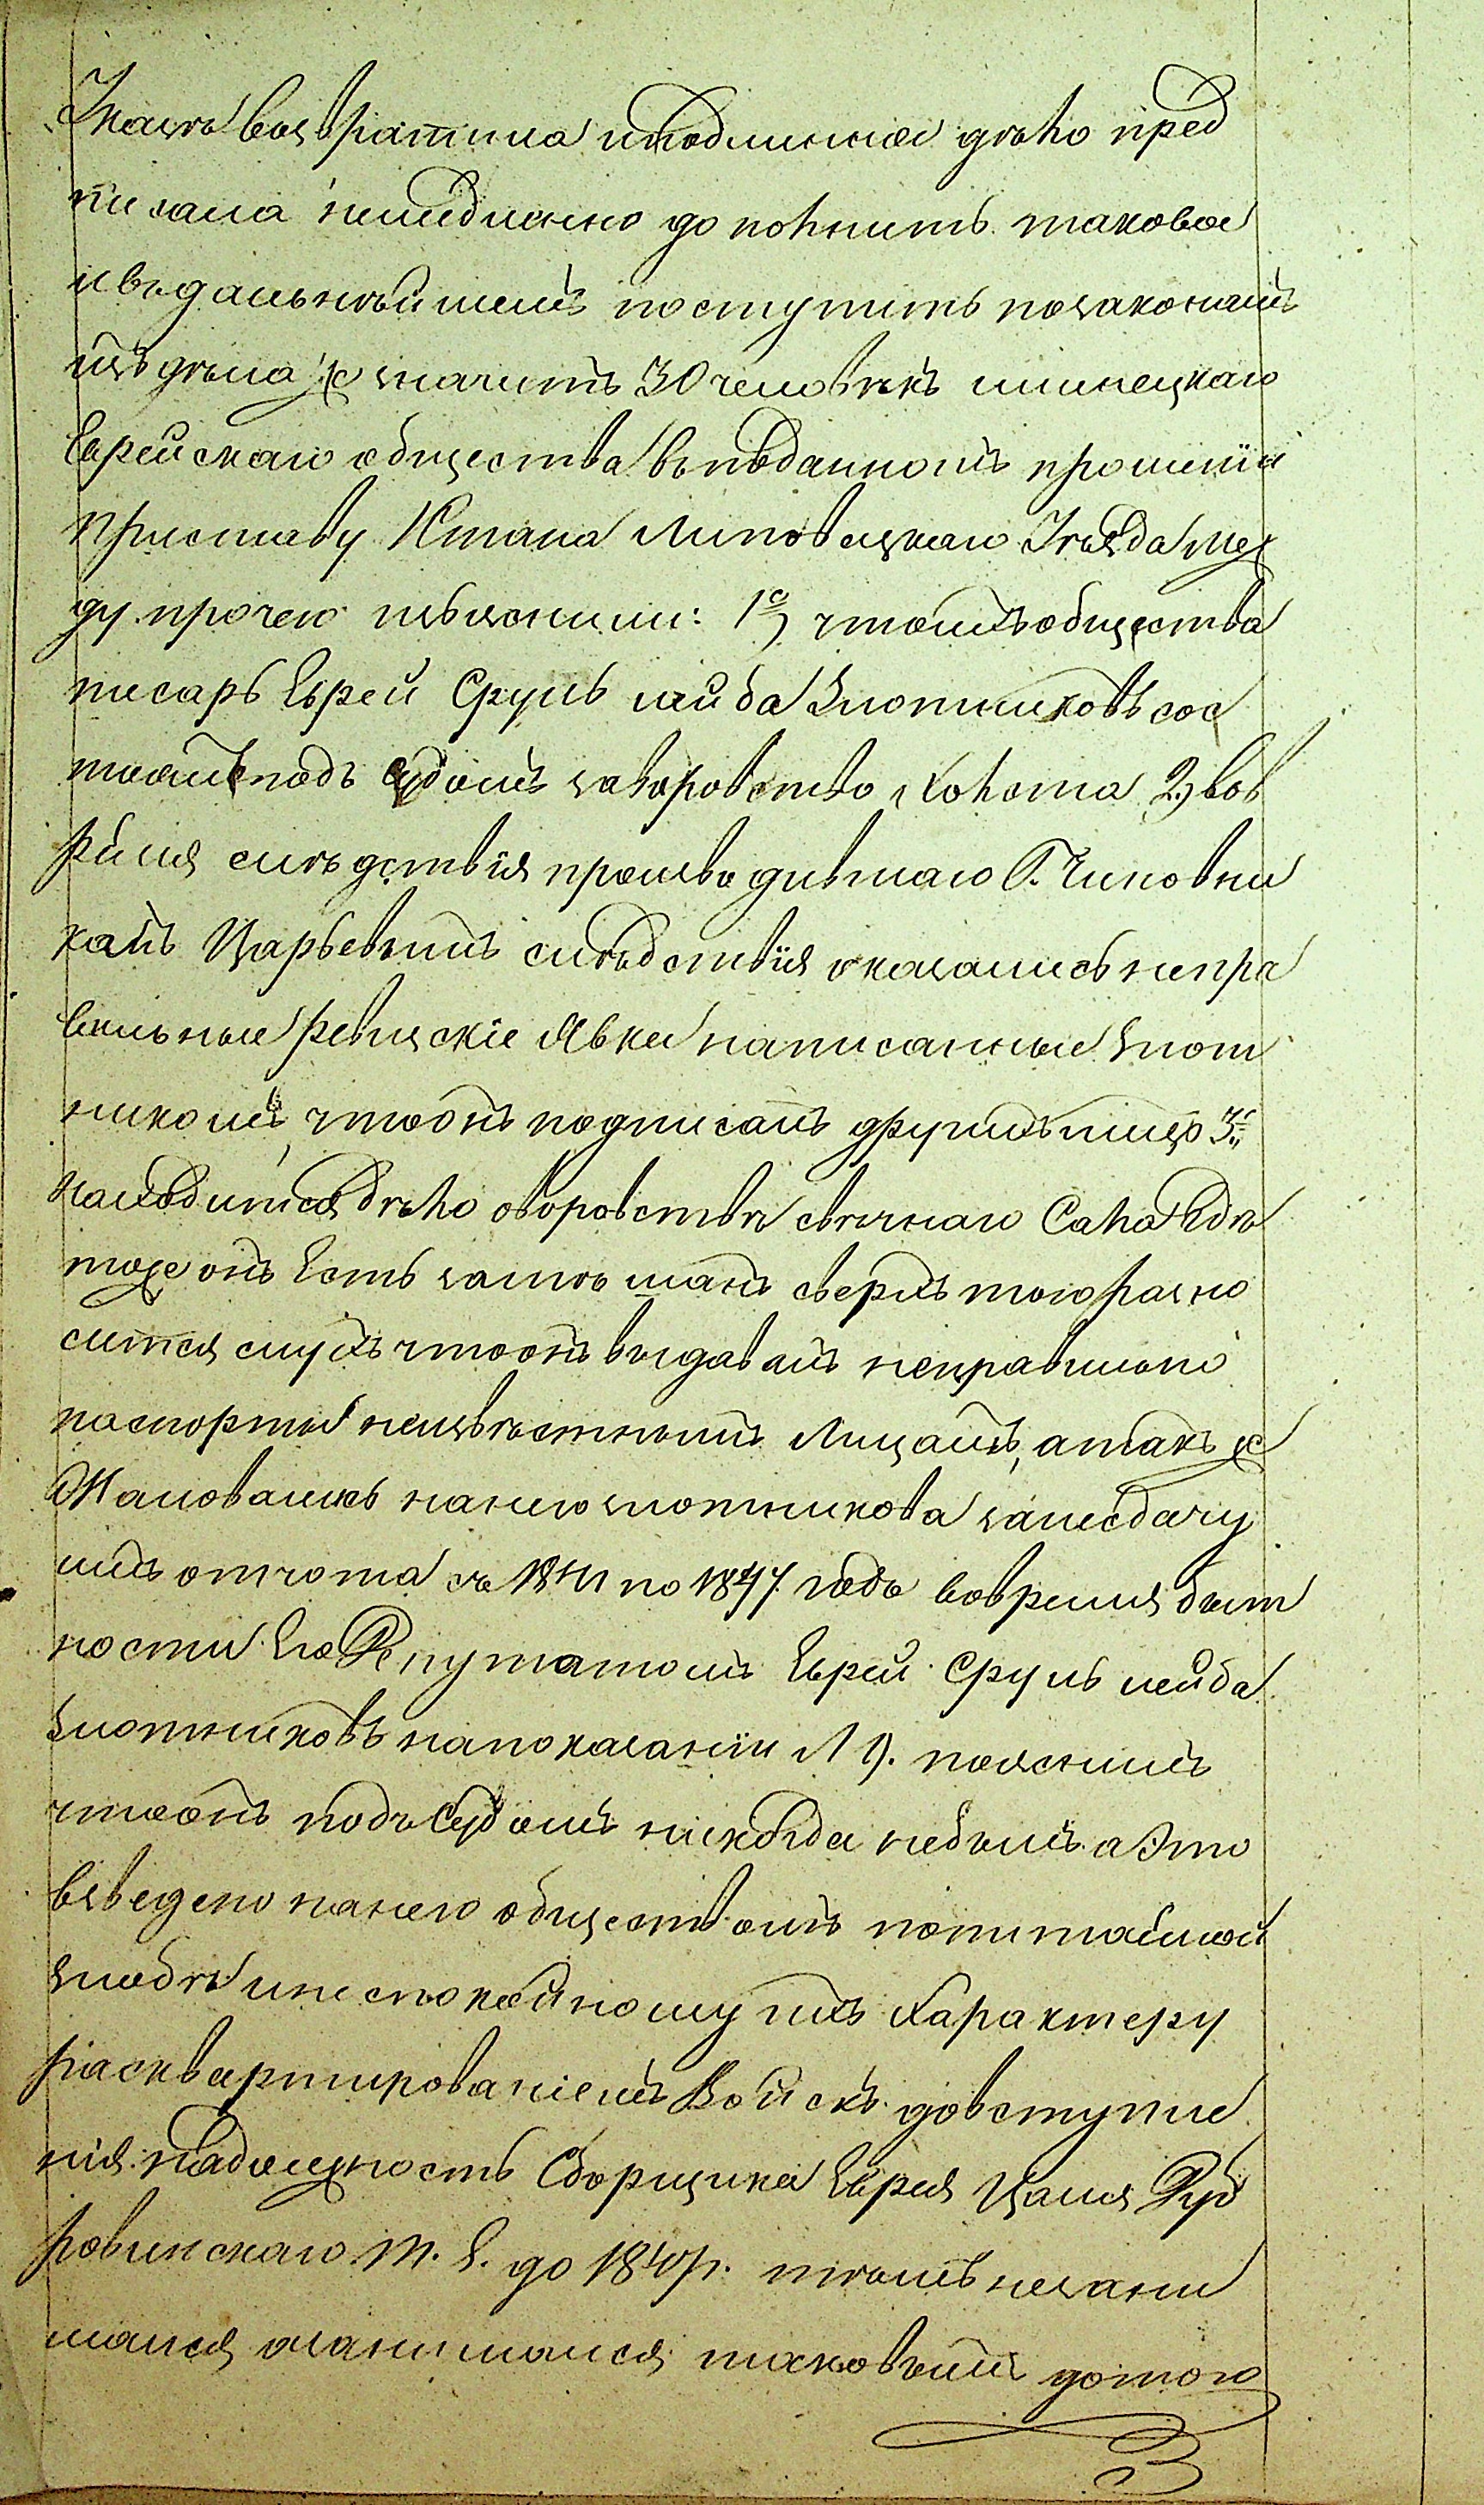 Указъ возвратила и подлинное дѣло пред
писала немедленно дополнить таковое
и въ дальнѣйшемъ поступить по законамъ
изъ дѣла же значитъ 30 человѣкъ илинецкаго
Еврейскаго общества въ поданномъ прошеніи
приставу 1 Стана Липовецкаго Уѣзда меж
ду прочею изъяснили: 1е) что ихъ общества
писарь Еврей Сруль лейба Злотниковъ сос
тоитъ подъ судомъ за воровство холста 2) вов
ремя слѣдствія производившаго О. Чиновни
комъ Царьевымъ слѣдствія оказались непра
вильные ревизскіе Явки написанные Злот
никомъ, что онъ подписалъ другихъ лицъ 3е
находится дѣло о воровствѣ свѣчнаго Сала гдѣ
тоже онъ Есть замѣшанъ сверхъ того разно
сится слухъ что онъ выдавалъ неправильно
паспорты неизвѣстнымъ Лицамъ, а также
Жаловались на него злотникова за несдачу
имъ отчота съ 1841 по 1847 годъ вовремя быт
ности Его Депутатомъ Еврей Сруль лейба
Злотниковъ на показаніи Л 9. пояснилъ
что онъ подъ Судомъ никогда небылъ а Это
взведено на него обществомъ по питаемой
злобѣ и неспокойному ихъ Характеру
расквартированіемъ Войскъ до вступле
нія на должность Сборщика Еврея Цаля Дуб
ровинскаго т. Е. до 184 г. тѣмъ незани
мался а занимался таковымъ до того